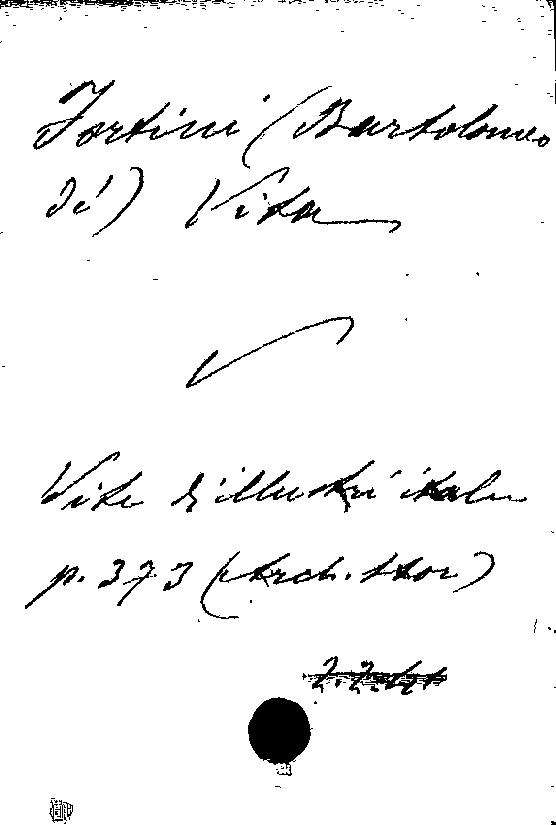 Fortini (Bartolomeo
di) Vita
Vite d'illustri ital.
p. 373 (Arch. stor)